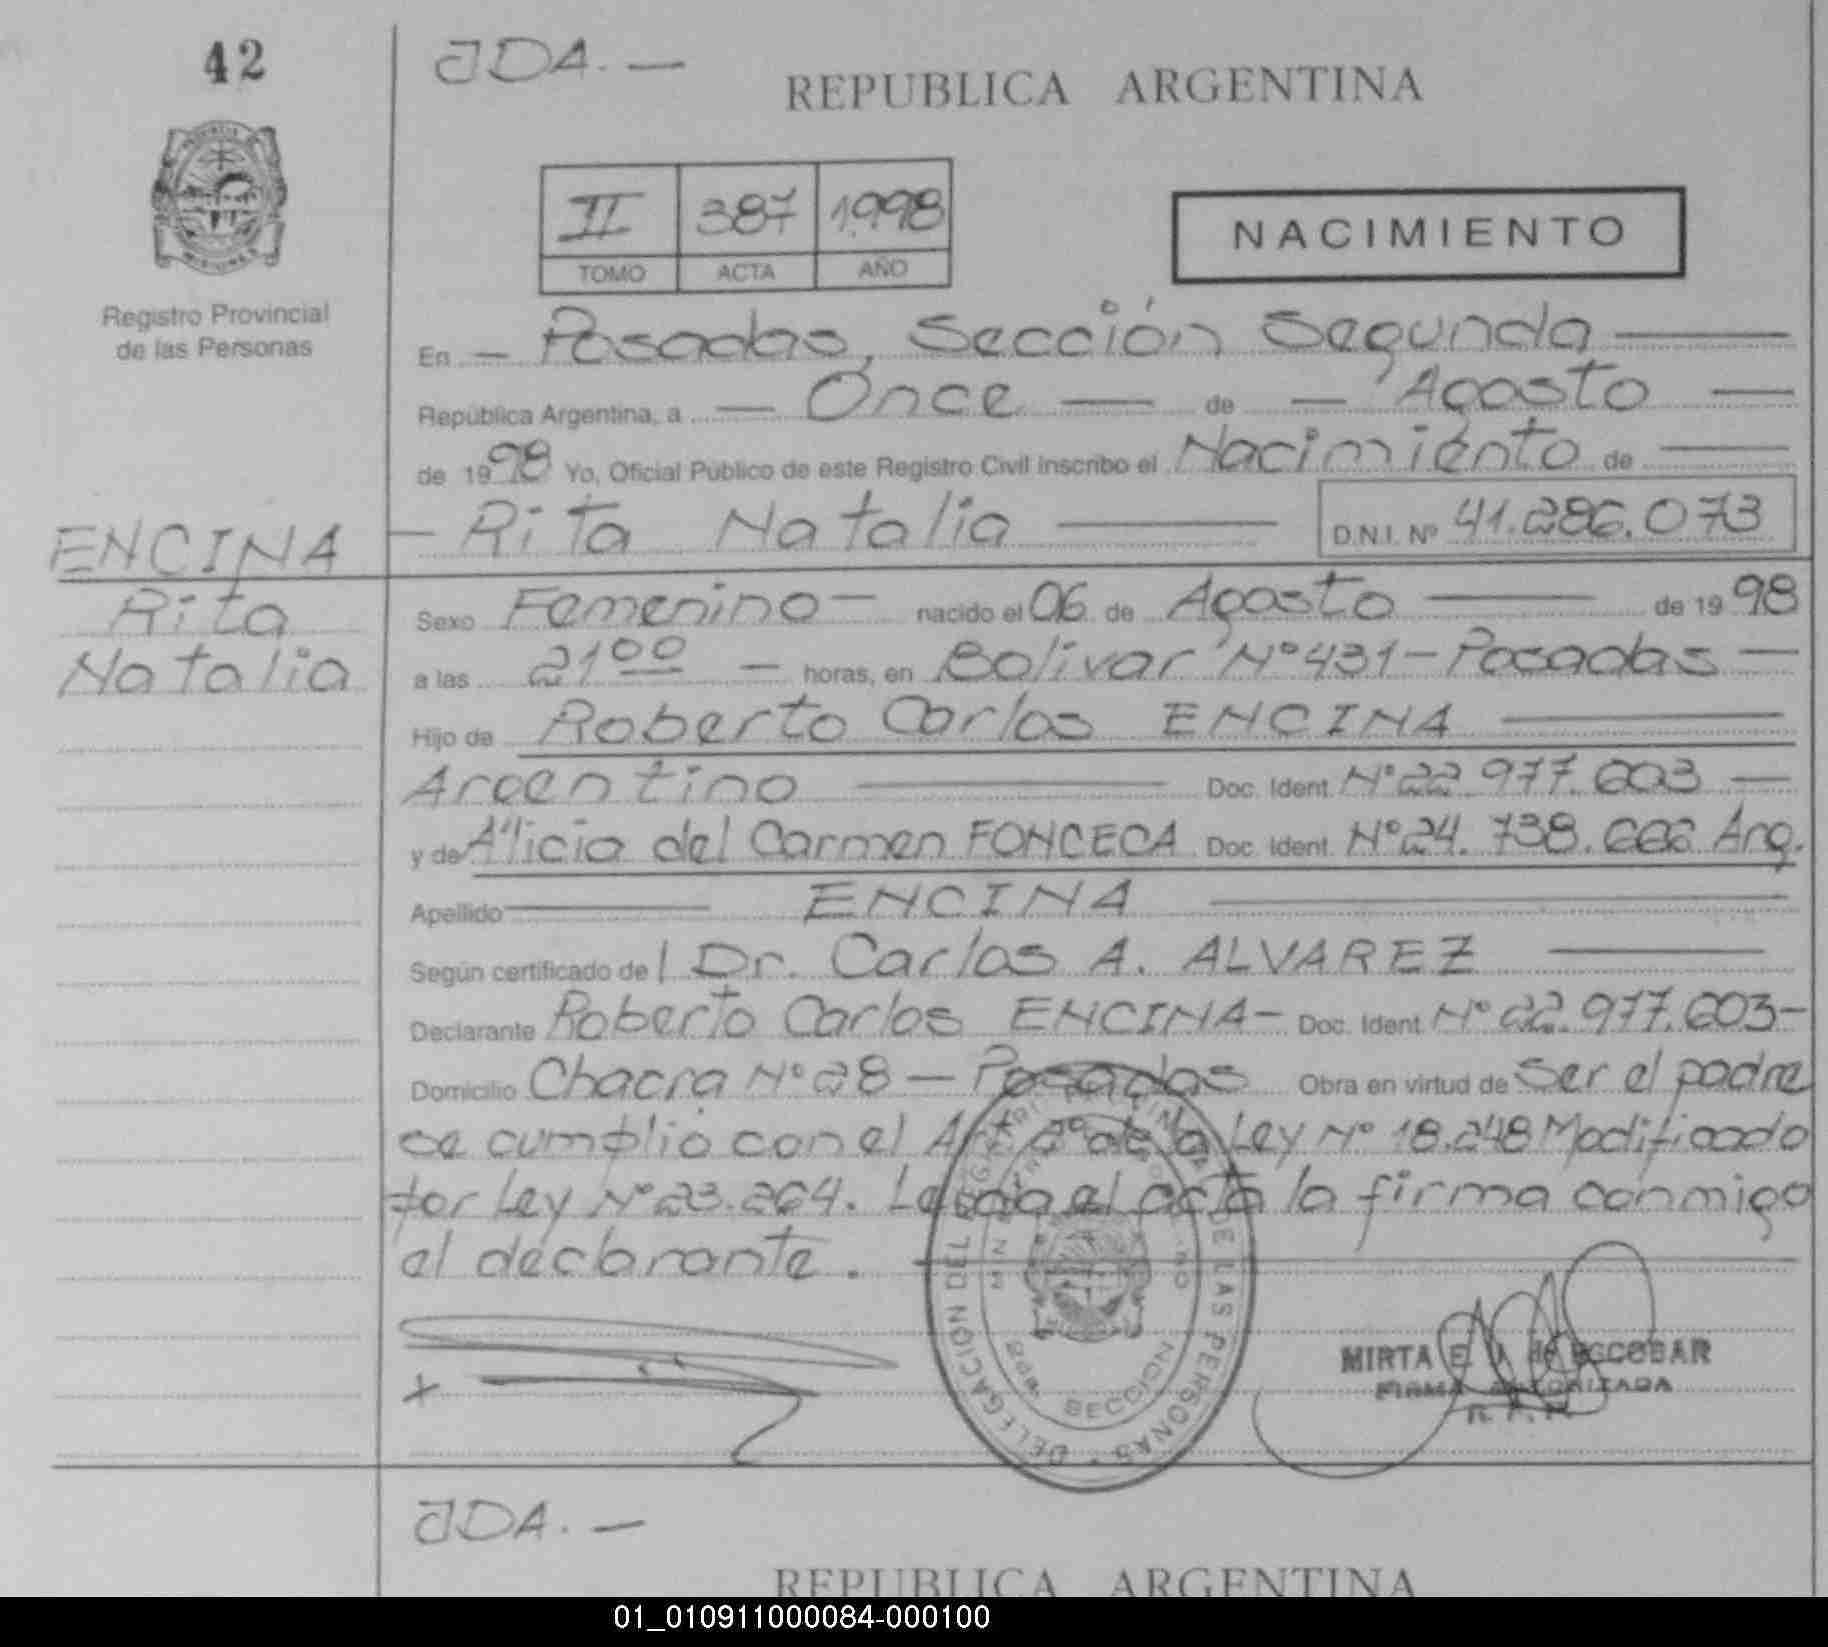 42
JDA. —
REPUBLICA ARGENTINA
II 387 1998
TOMO ACTA AÑO
NACIMIENTO
Registro Provincial
de las Personas
En — Posadas, Sección Segunda —
República Argentina, a — Once — de — Agosto —
de 1998 Yo, Oficial Público de este Registro Civil inscribo el Nacimiento de —
ENCINA
Rita
Natalia
— Rita Natalia — D.N.I. Nº 41.286.073
Sexo Femenino — nacido el 06 de Agosto — de 1998
a las 21 00 — horas, en Bolivar Nº 431 - Posadas —
Hijo de Roberto Carlos ENCINA —
Argentino — Doc. Ident. Nº 22.977.603 —
y de Alicia del Carmen FONCECA Doc. Ident. Nº 24.738.666 Arg.
Apellido — ENCINA —
Según certificado de l Dr. Carlos A. ALVAREZ —
Declarante Roberto Carlos ENCINA - Doc. Ident. Nº 22.977.603 -
Domicilio Chacra Nº 28 — Posadas Obra en virtud de ser el padre
se cumplió con el Art 2º de la Ley Nº 18.248 Modificado
por Ley Nº 23.264. Leída el acta la firma conmigo
el declarante.
DELEGACION DEL REGISTRO PROVINCIAL DE LAS PERSONAS
2da. SECCION
MIRTA E. de ESCOBAR
FIRMA AUTORIZADA
JDA. —
REPUBLICA ARGENTINA
01_010911000084-000100